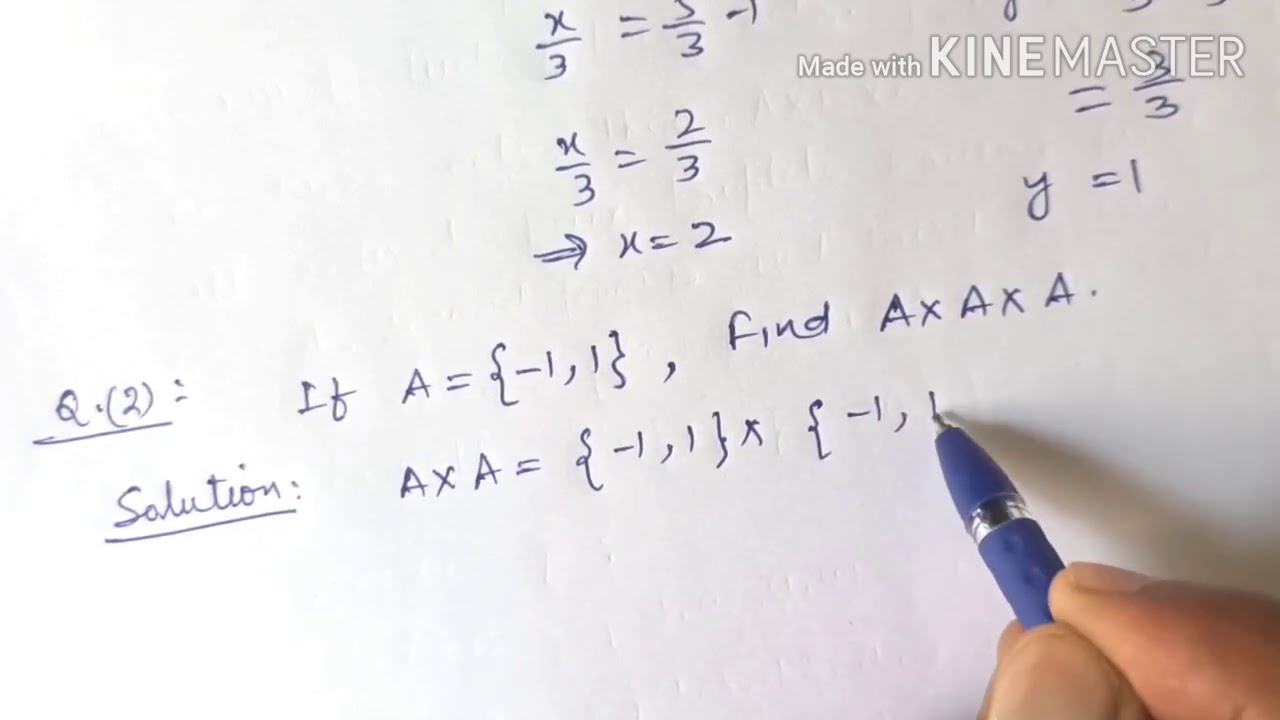 x/3 = 5/3 -1
Made with KINEMASTER
= 3/3
x/3 = 2/3
y = 1
⇒ x = 2
Q.(2): If A = {-1, 1}, Find A × A × A.
Solution: A × A = {-1, 1} × { -1, 1